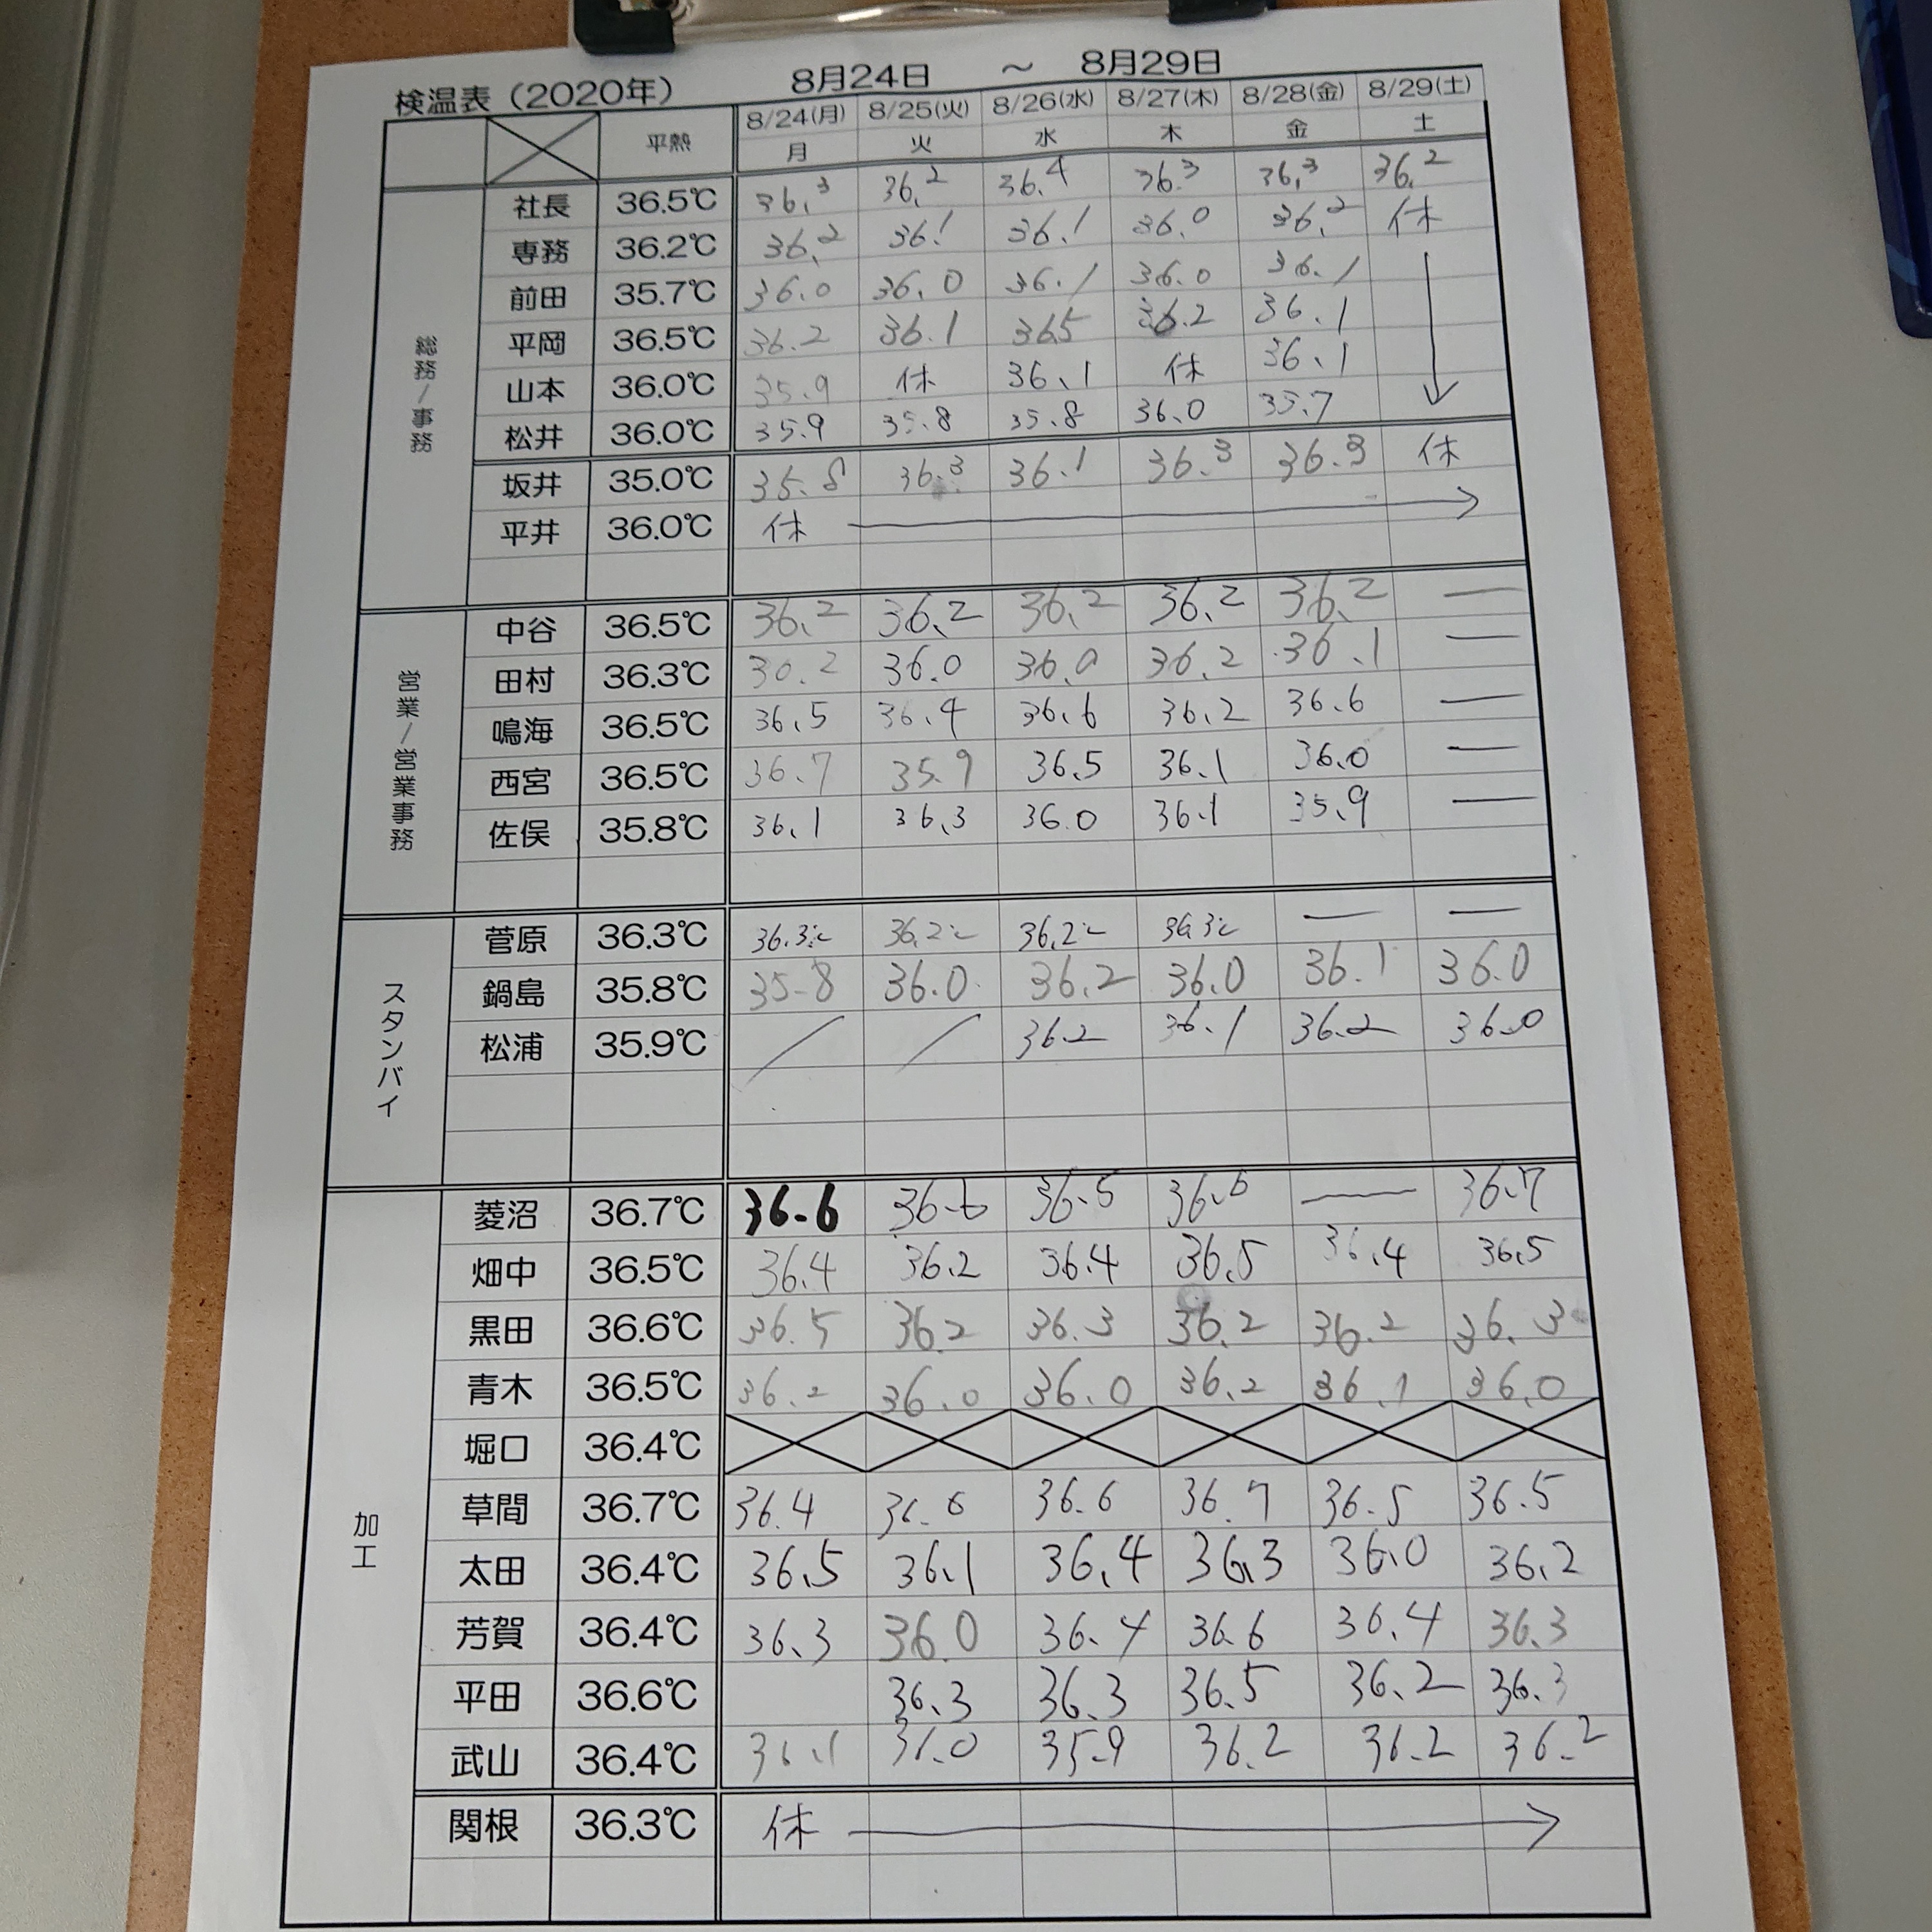 検温表（2020年） 8月24日 ～ 8月29日
平熱 8/24(月) 8/25(火) 8/26(水) 8/27(木) 8/28(金) 8/29(土)
月 火 水 木 金 土
総務/事務
社長 36.5℃ 36.3 36.2 36.4 36.3 36.3 36.2
専務 36.2℃ 36.2 36.1 36.1 36.0 36.2 休
前田 35.7℃ 36.0 36.0 36.1 36.0 36.1
平岡 36.5℃ 36.2 36.1 36.5 36.2 36.1
山本 36.0℃ 35.9 休 36.1 休 36.1
松井 36.0℃ 35.9 35.8 35.8 36.0 35.7
坂井 35.0℃ 35.8 36.3 36.1 36.3 36.3 休
平井 36.0℃ 休 →
営業/営業事務
中谷 36.5℃ 36.2 36.2 36.2 36.2 36.2 —
田村 36.3℃ 36.2 36.0 36.0 36.2 36.1 —
鳴海 36.5℃ 36.5 36.4 36.6 36.2 36.6 —
西宮 36.5℃ 36.7 35.9 36.5 36.1 36.0 —
佐俣 35.8℃ 36.1 36.3 36.0 36.1 35.9 —
スタンバイ
菅原 36.3℃ 36.3℃ 36.2℃ 36.2℃ 36.3℃ — —
鍋島 35.8℃ 35.8 36.0 36.2 36.0 36.1 36.0
松浦 35.9℃ / / 36.2 36.1 36.2 36.0
加工
菱沼 36.7℃ 36.6 36.6 36.5 36.6 — 36.7
畑中 36.5℃ 36.4 36.2 36.4 36.5 36.4 36.5
黒田 36.6℃ 36.5 36.2 36.3 36.2 36.2 36.3
青木 36.5℃ 36.2 36.0 36.0 36.2 36.1 36.0
堀口 36.4℃
草間 36.7℃ 36.4 36.6 36.6 36.7 36.5 36.5
太田 36.4℃ 36.5 36.1 36.4 36.3 36.0 36.2
芳賀 36.4℃ 36.3 36.0 36.4 36.6 36.4 36.3
平田 36.6℃ 36.3 36.3 36.5 36.2 36.3
武山 36.4℃ 36.1 36.0 35.9 36.2 36.2 36.2
関根 36.3℃ 休 →